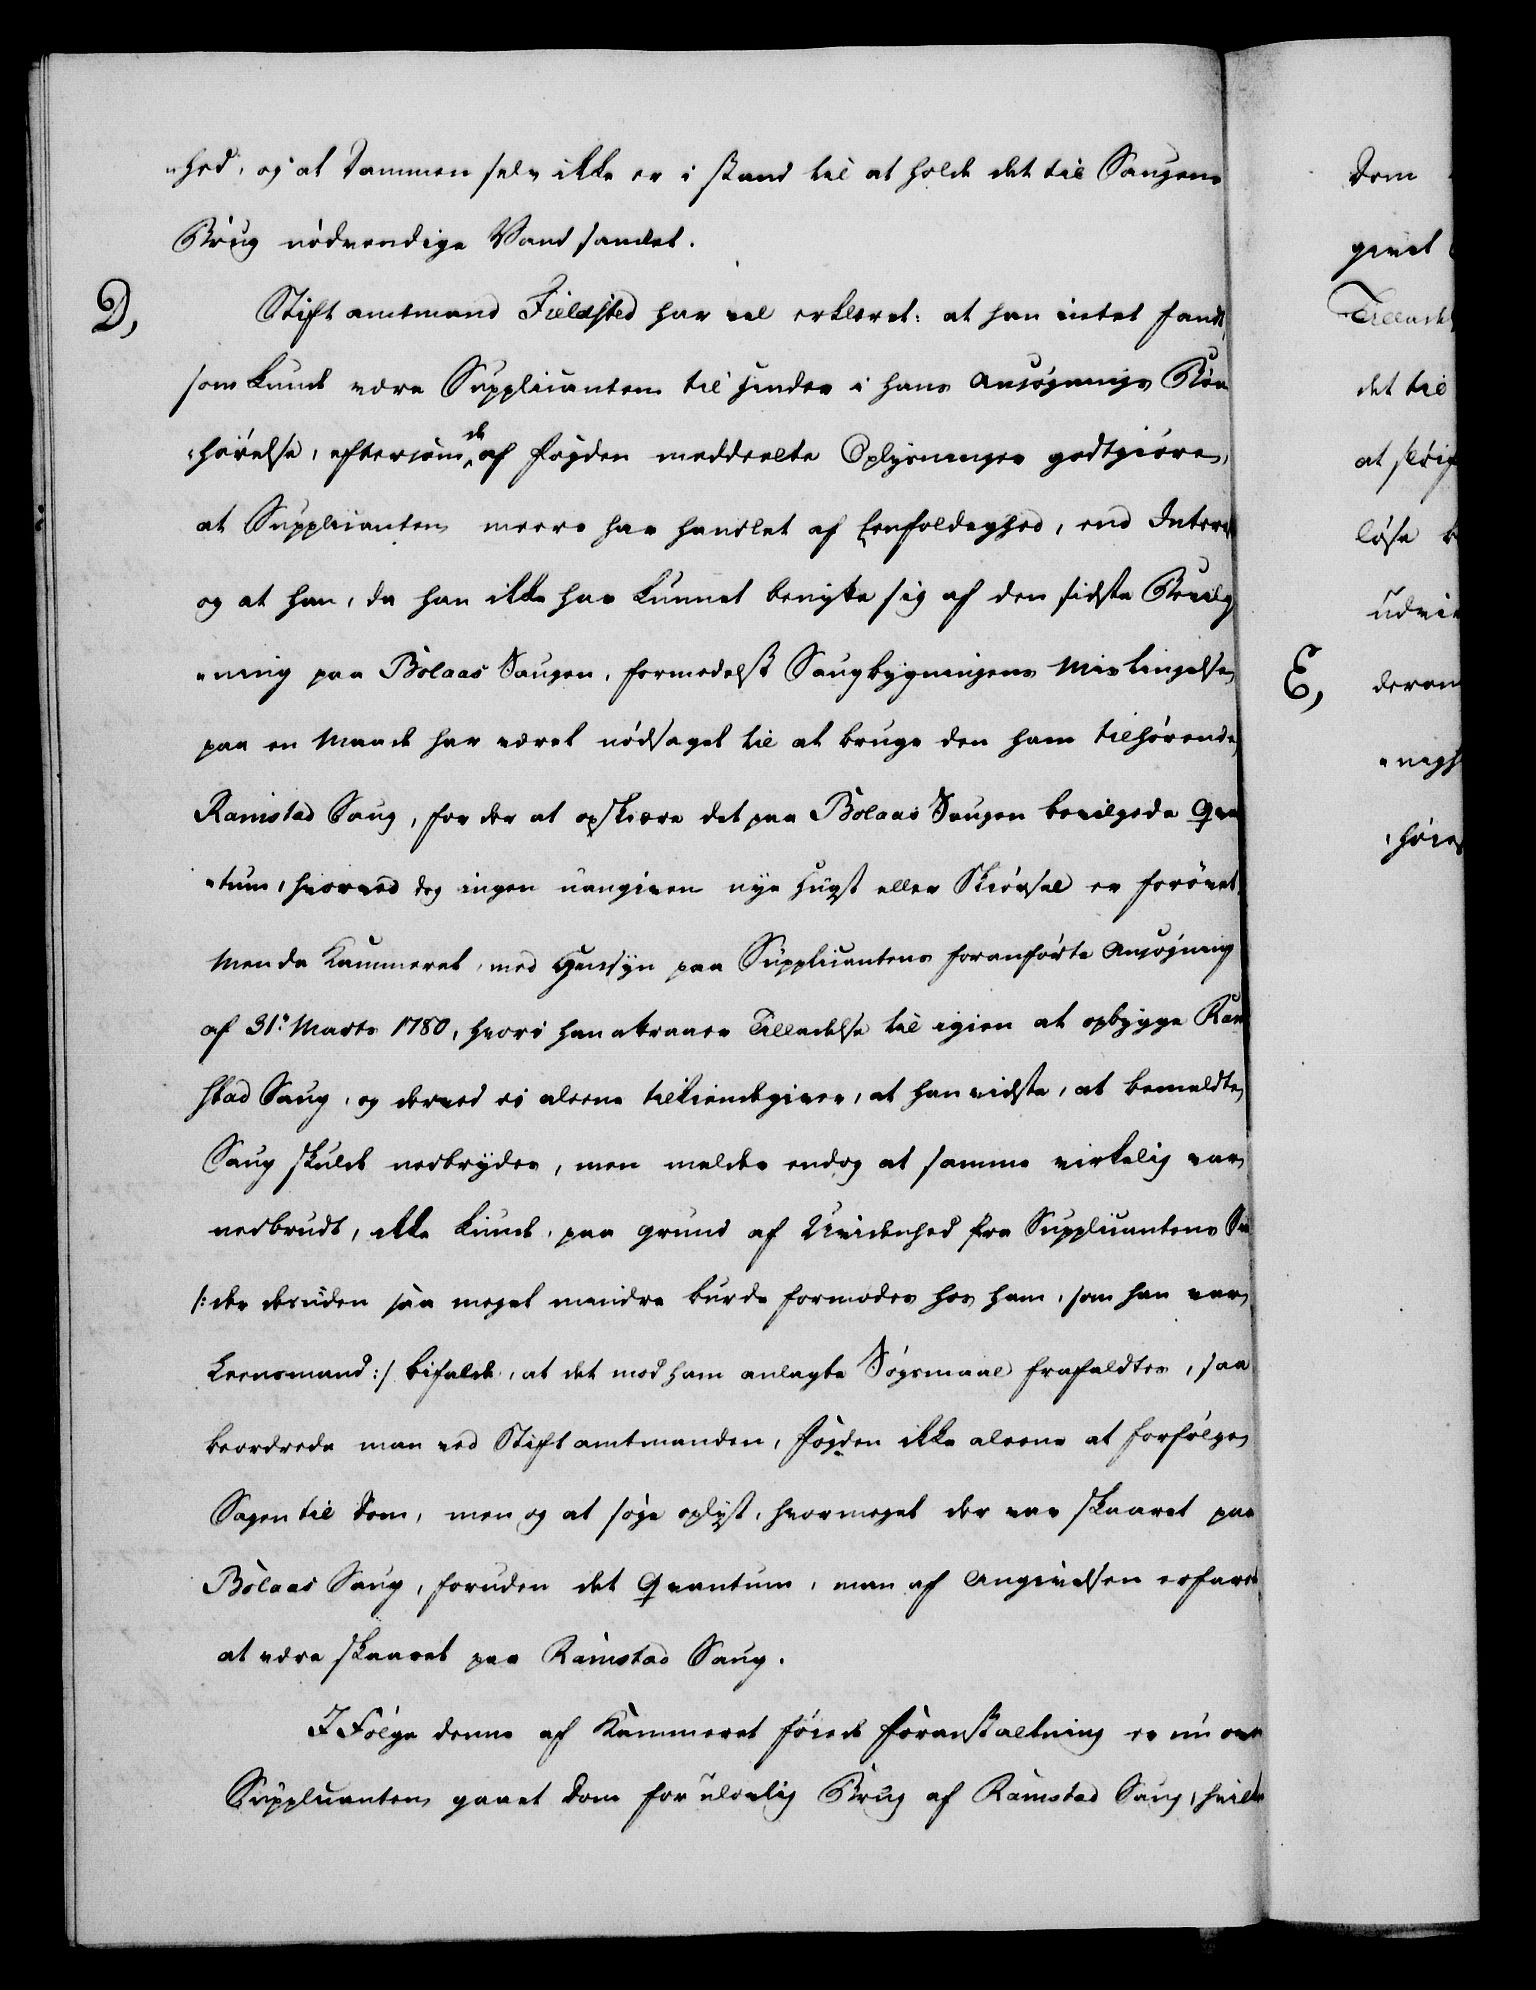 "hed, og at Dammen selv ikke er i stand til at holde det til Saugens
Brug nödvendige Vand samlet.
D,
Stiftamtmand Fieldsted har vel erklæret: at han intet fandt,
som kunde være Supplicanten til hinder i hans Ansøgnings Bøn¬
"hørelse, eftersom de af Fogden meddeelte Oplysninger godtgiøre,
at Supplicanten meere har handlet af Eenfoldighed, end Interes
og at han, da han ikke har kunnet benytte sig af den sidste Bevilg¬
"ning paa Bölaas Saugen, formedelst Saugbygningens Mislingelse,
paa en Maade har været nödsaget til at bruge den ham tilhørende
Ramstad Saug, for der at opskiære det paa Bölaas Saugen bevilgede Qvan
"tum, hvorved dog ingen uangiven nye Hugst eller Skiørsel er forøvet.
Men da Kammeret, med Hensyn paa Supplicantens foranførte Ansøgning
af 31te Marts 1780, hvori han attraaer Tilladelse til igien at opbygge Ram
stad Saug, og derved ei aleene tilkiendegiver, at han vidste, at bemeldte
Saug skulde nedbrydes, men melder endog at samme virkelig var
nedbrudt, ikke kunde, paa grund af Uvidenhed fra Supplicantens Sii
/: der desuden saa meget mindre burde formodes hos ham, som han var
Leensmand :/ bifalde, at det mod ham anlagte Søgsmaal frafaldtes, saa
beordrede man ved Stiftamtmanden, Fogden ikke aleene at forfølge
Sagen til Dom, men og at søge oplyst, hvormeget der var skaaret paa
Bölaas Saug, foruden det Qvantum, man af Angivelsen erfarede
at være skaaret paa Ramstad Saug.
I Følge denne af Kammeret føiede Foranstaltning er nu over
Supplicanten gaaet Dom for ulovlig Brug af Ramstad Saug, hvilke
Dom
givet
Tillade
det til
at
løse
udvi
E,
deram